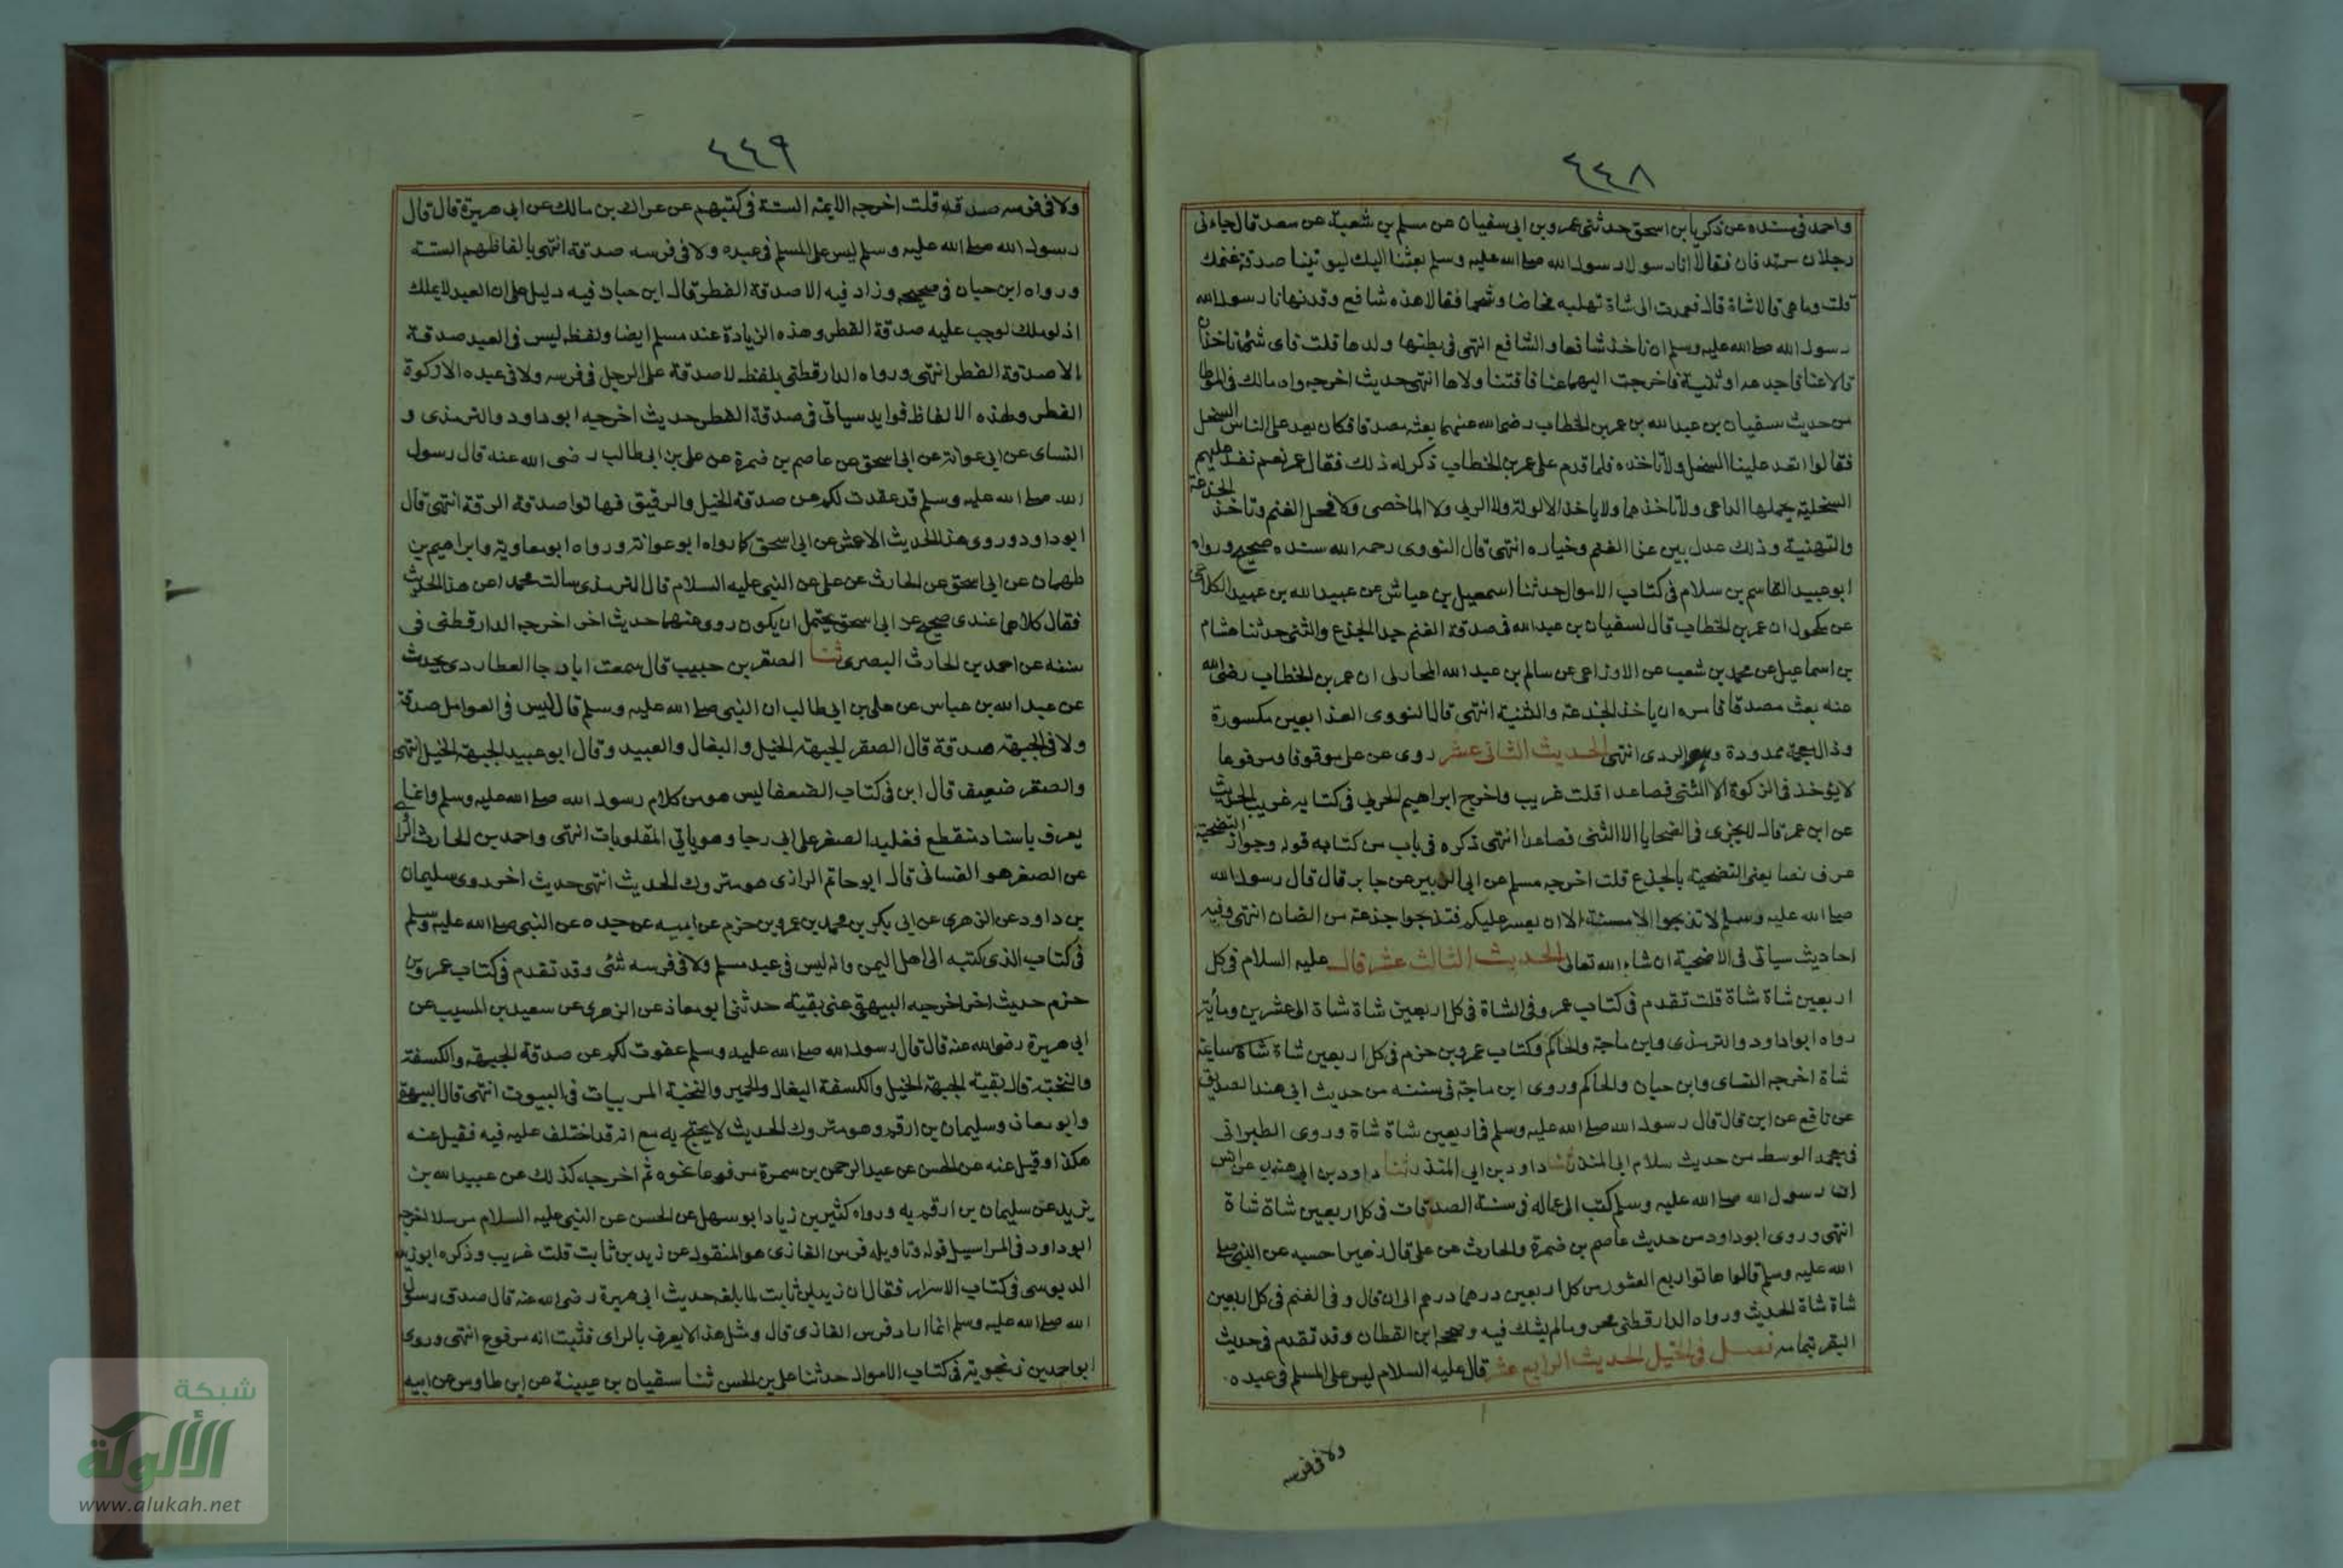 ٤٤٨
واحمد فى مسنده عن زكريا بن اسحق حدثنى عمرو بن ابى سفيان عن مسلم بن شعبة عن سعد قال جاءنى
رجلان مرتدفان فقالا انا رسولا رسول الله صلى الله عليه وسلم بعثنا اليك لتوتينا صدقة غنمك
قلت وما هى قالا شاة قال فعمدت الى شاة ممتلية مخاضا وشحما فقالا هذه شافع وقد نهانا رسول الله
رسول الله صلى الله عليه وسلم ان ناخذ شافعا والشافع التى فى بطنها ولدها قلت فاى شئ تاخذان
قالا عناقا جذعة او ثنية فاخرجت اليهما عناقا فتناولاها انتهى حديث اخر رواه مالك فى الموطا
من حديث سفيان بن عبد الله بن عمر بن الخطاب رضى الله عنهما بعثه مصدقا فكان يعد على الناس السخل
فقالوا تعد علينا السخل ولا تاخذه فلما قدم على عمر بن الخطاب ذكر له ذلك فقال عمر نعم نعد عليهم
السخلة يحملها الراعى ولا ناخذها ولا ياخذ الاكولة ولا الربى ولا الماخض ولا فحل الغنم وتاخذ الجذعة
والثنية وذلك عدل بين غذا الغنم وخياره انتهى قال النووى رحمه الله سنده صحيح ورواه
ابو عبيد القاسم بن سلام فى كتاب الاموال حدثنا اسمعيل بن عياش عن عبيد الله بن عبيد الكلاعى
عن مكحول ان عمر بن الخطاب قال لسفيان بن عبد الله فى صدقة الغنم خذ الجذع والثنى حدثنا هشام
بن اسماعيل عن محمد بن شعيب عن الاوزاعى عن سالم بن عبد الله المحاربى ان عمر بن الخطاب رضى الله
عنه بعث مصدقا فامره ان ياخذ الجذعة والثنية انتهى قال النووى الغذا بغين مكسورة
وذال معجمة ممدودة وهو الردى انتهى الحديث الثانى عشر روى عن على موقوفا ومرفوعا
لا يؤخذ فى الزكوة الا الثنى فصاعدا قلت غريب واخرج ابراهيم الحربى فى كتابه غريب الحديث
عن ابن عمر قال لا يجزى فى الضحايا الا الثنى فصاعدا انتهى ذكره فى باب من كتابه قوله وجواز التضحية
عرف نصا يعنى التضحية بالجذع قلت اخرجه مسلم عن ابى الزبير عن جابر قال قال رسول الله
صلى الله عليه وسلم لا تذبحوا الا مسنة الا ان يعسر عليكم فتذبحوا جذعة من الضان انتهى وفيه
احاديث سياتى فى الاضحية ان شاء الله تعالى الحديث الثالث عشر قال عليه السلام فى كل
اربعين شاة شاة قلت تقدم فى كتاب عمر وفى الشاة فى كل اربعين شاة شاة الى عشرين ومأية
رواه ابوا داود والترمذى وابن ماجة والحاكم وكتاب عمرو بن حزم فى كل اربعين شاة شاة سايمة
شاة اخرجه النساى وابن حبان والحاكم وروى ابن ماجة فى سننه من حديث ابى هند الصديق
عن نافع عن ابن قال قال رسول الله صلى الله عليه وسلم فى اربعين شاة شاة وروى الطبرانى
فى معجمه الوسط من حديث سلام ابى المنذر ثنا داود بن ابى المنذر ثنا داود بن ابى هند عن انس
ان رسول الله صلى الله عليه وسلم كتب الى عماله فى سنة الصدقات فى كل اربعين شاة شاة
انتهى وروى ابو داود من حديث عاصم بن ضمرة والحارث عن على قال زهير احسبه عن النبى صلى
الله عليه وسلم قالوا هاتوا ربع العشور من كل اربعين درهما درهم الى ان قال وفى الغنم فى كل اربعين
شاة شاة الحديث ورواه الدارقطنى مجزوما لم يشك فيه وصححه ابن القطان وقد تقدم فى حديث
البقر بتمامه فصل فى الخيل الحديث الرابع عشر قال عليه السلام ليس على المسلم فى عبده
ولا فى فرسه
٤٤٩
ولا فى فرسه صدقة قلت اخرجه الايمة الستة فى كتبهم عن عراك بن مالك عن ابى هريرة قال قال
رسول الله صلى الله عليه وسلم ليس على المسلم فى عبده ولا فى فرسه صدقة انتهى بالفاظهم الستة
ورواه ابن حبان فى صحيحه وزاد فيه الا صدقة الفطر قال ابن حبان فيه دليل على ان العبد لا يملك
اذ لو ملك لوجب عليه صدقة الفطر وهذه الزيادة عند مسلم ايضا ولفظه ليس فى العبد صدقة
الا صدقة الفطر انتهى ورواه الدارقطنى بلفظ لا صدقة على الرجل فى فرسه ولا فى عبده الا زكوة
الفطر ولهذه الالفاظ فوايد سياتى فى صدقة الفطر حديث اخرجه ابو داود والترمذى و
النساى عن ابى عوانة عن ابى اسحق عن عاصم بن ضمرة عن على بن ابى طالب رضى الله عنه قال رسول
الله صلى الله عليه وسلم قد عفوت لكم عن صدقة الخيل والرقيق فهاتوا صدقة الرقة انتهى قال
ابو داود وروى هذا الحديث الاعمش عن ابى اسحق كما رواه ابو عوانة ورواه ابو معاوية وابراهيم بن
طهمان عن ابى اسحق عن الحارث عن على عن النبى عليه السلام قال الترمذى سالت محمدا عن هذا الحديث
فقال كلاهما عندى صحيح عن ابى اسحق يحتمل ان يكون روى عنهما حديث اخر اخرجه الدارقطنى فى
سننه عن احمد بن الحارث البصرى ثنا الصقر بن حبيب قال سمعت ابا رجا العطاردى يحدث
عن عبد الله بن عباس عن على بن ابى طالب ان النبى صلى الله عليه وسلم قال ليس فى العوامل صدقة
ولا فى الجبهة صدقة قال الصقر الجبهة الخيل والبغال والعبيد وقال ابو عبيد الجبهة الخيل انتهى
والصقر ضعيف قال ابن فى كتاب الضعفا ليس هو من كلام رسول الله صلى الله عليه وسلم وانما
يعرف باسناد منقطع فقلبه الصقر على ابى رجا وهو ياتى المقلوبات انتهى واحمد بن الحارث الراوى
عن الصقر هو الغسانى قال ابو حاتم الرازى هو متروك الحديث انتهى حديث اخر روى سليمان
بن داود عن الزهرى عن ابى بكر بن محمد بن عمرو بن حزم عن ابيه عن جده عن النبى صلى الله عليه وسلم
فى كتاب الذى كتبه الى اهل اليمن وانه ليس فى عبد مسلم ولا فى فرسه شئى وقد تقدم فى كتاب عمرو بن
حزم حديث اخر اخرجه البيهقى عن بقية حدثنى ابو معاذ عن الزهرى عن سعيد بن المسيب عن
ابى هريرة رضى الله عنه قال قال رسول الله صلى الله عليه وسلم عفوت لكم عن صدقة الجبهة والكسفة
والنخبة قال بقية الجبهة الخيل والكسفة البغال والحمير والنخبة المربيات فى البيوت انتهى قال البيهقى
وابو معاذ وسليمان بن ارقم وهو متروك الحديث لا يحتج به مع انه قد اختلف عليه فيه فقيل عنه
هكذا وقيل عنه عن الحسن عن عبد الرحمن بن سمرة مرفوعا نحوه ثم اخرجاه كذلك عن عبيد الله بن
يزيد عن سليمان بن ارقم به ورواه كثير بن زياد ابو سهل عن الحسن عن النبى عليه السلام مرسلا اخرجه
ابو داود فى المراسيل قوله وتاويله فرس الغازى هو المنقول عن زيد بن ثابت قلت غريب وذكره ابو زيد
الدبوسى فى كتاب الاسرار فقال ان زيد بن ثابت لما بلغه حديث ابى هريرة رضى الله عنه قال صدق رسول
الله صلى الله عليه وسلم انما اراد فرس الغازى قال ومثل هذا لا يعرف بالراى فثبت انه مرفوع انتهى وروى
ابو احمد بن زنجوية فى كتاب الاموال حدثنا على بن الحسن ثنا سفيان بن عيينة عن ابن طاوس عن ابيه
شبكة
الألوكة
www.alukah.net